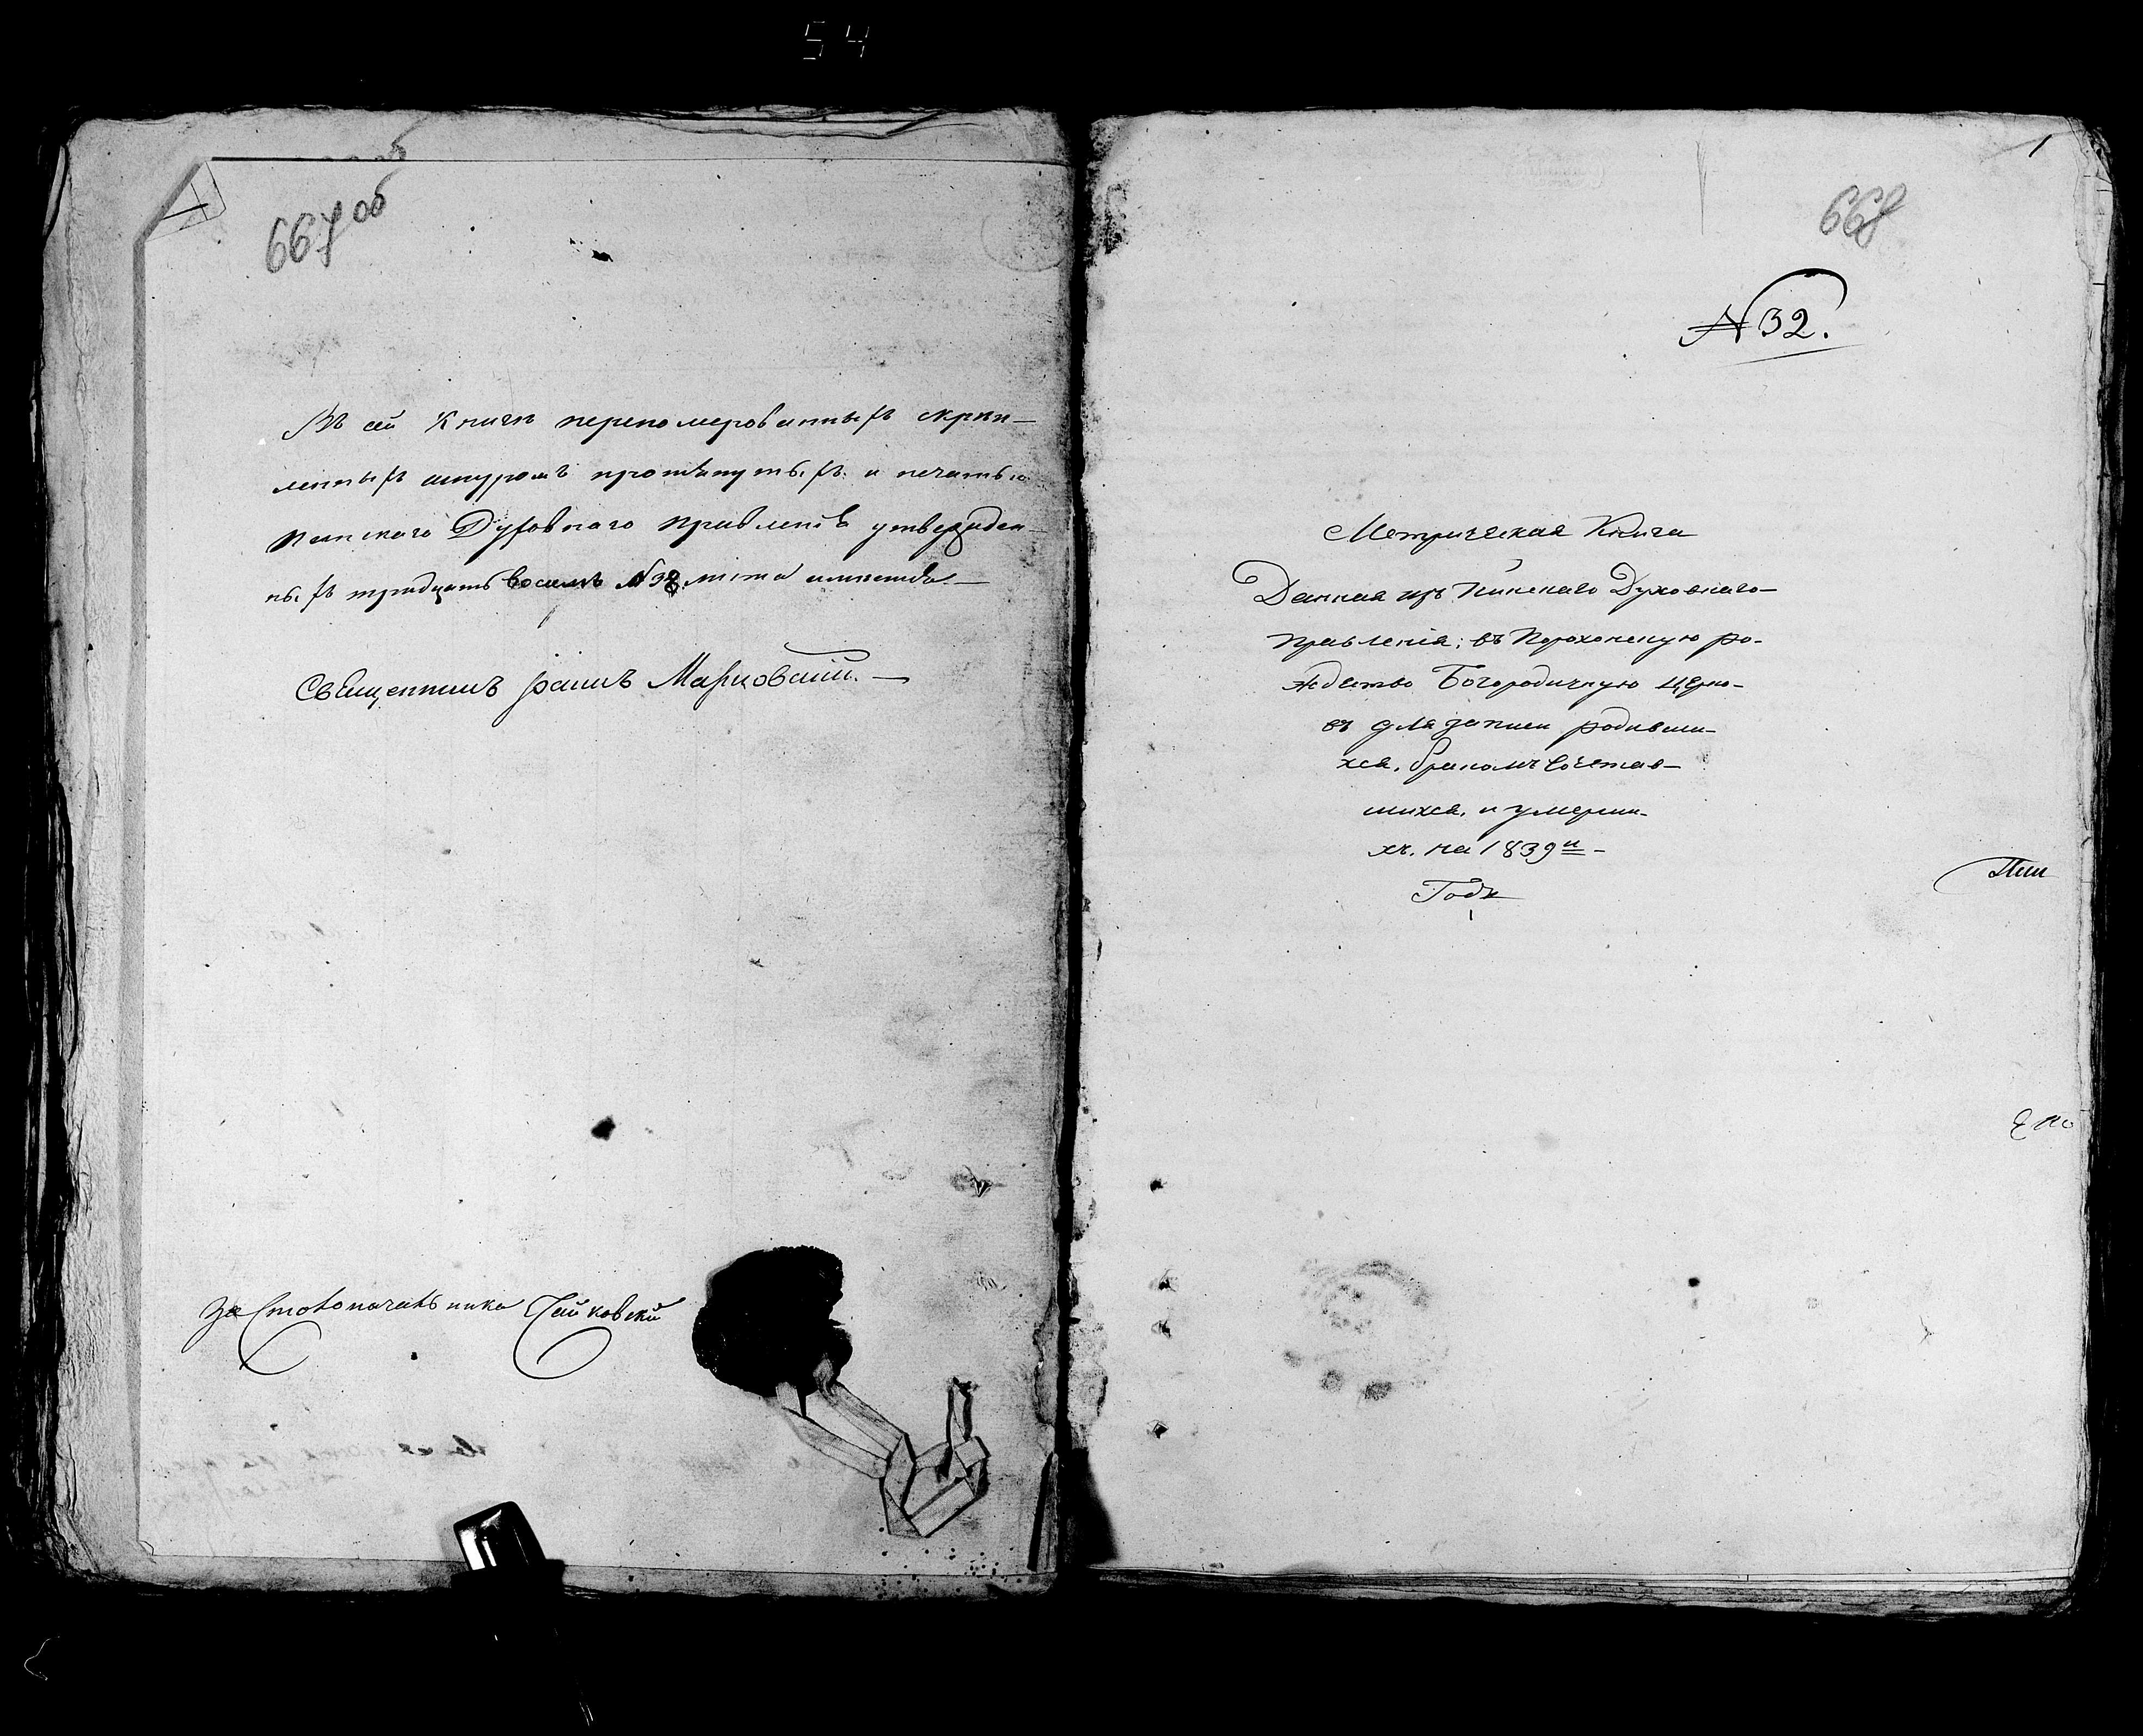 54
667 об
Въ сей Книгѣ переномерованныхъ скрѣп-
ленныхъ шнуромъ протянутыхъ и печатью
Пинскаго Духовнаго Правленія утвержден-
ныхъ тридцать восемь №38 листа имѣется
Священникъ Іоаннъ
За Столоначальника Чайковскій
1
668
№32.
Метрическая Книга
Данная изъ Пинскаго Духовнаго
Правленія; въ Порохонскую ро-
ждество Богородичную Церко-
въ для записи родивши-
хся, бракомъ сочетав-
шихся, и умерши-
хъ. на 1839й
Годъ
Пин